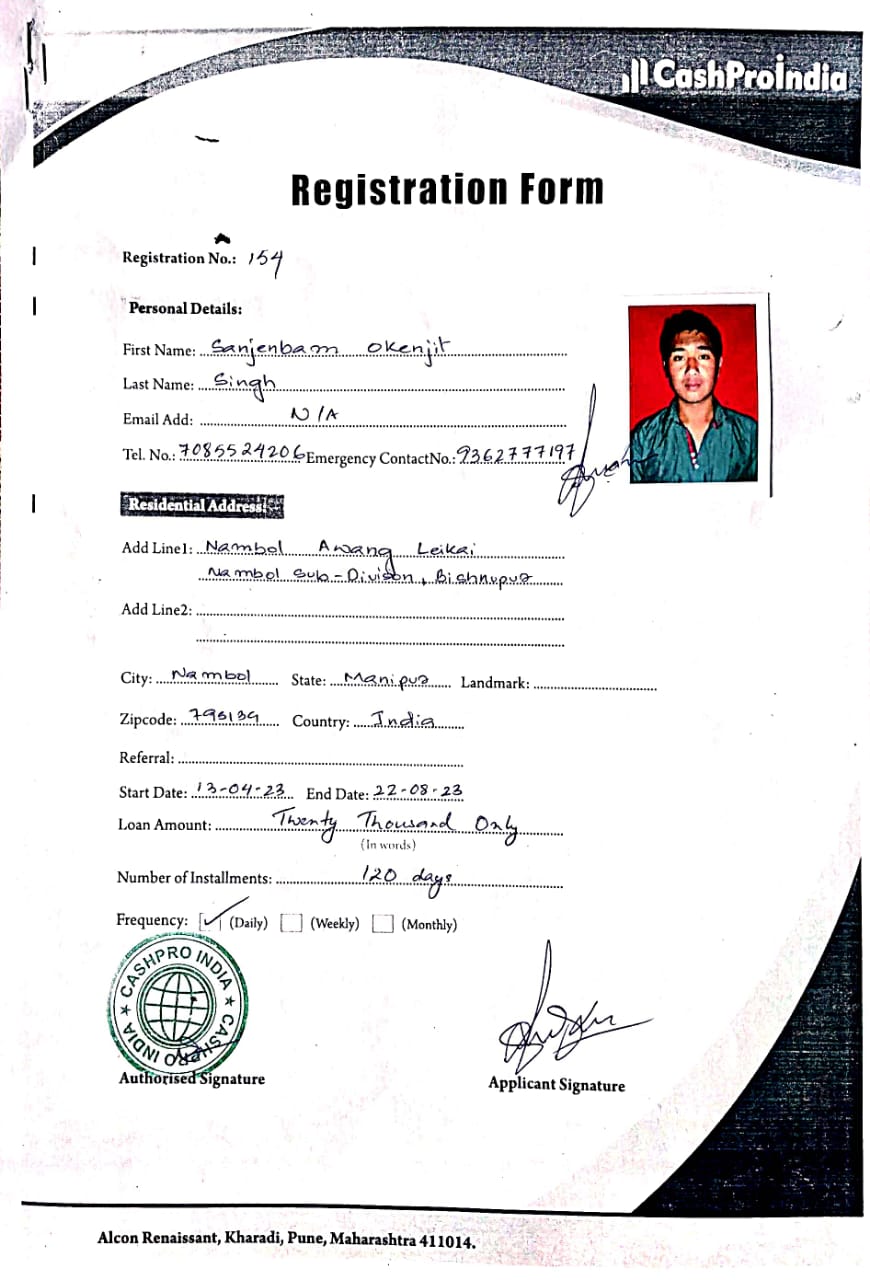 CashProIndia
Registration Form
Registration No.: 154
Personal Details:
First Name: Sanjenbam Okenjit
Last Name: Singh
Email Add: N/A
Tel. No.: 7085524206 Emergency ContactNo.: 9362777197
Residential Address:
Add Line1: Nambol Awang Leikai
Nambol Sub-Divison, Bishnupur
Add Line2:
City: Nambol State: Manipur Landmark:
Zipcode: 795134 Country: India
Referral:
Start Date: 13-04-23 End Date: 22-08-23
Loan Amount: Twenty Thousand Only
(In words)
Number of Installments: 120 days
Frequency: (Daily) (Weekly) (Monthly)
CASHPRO INDIA ★ CASHPRO INDIA ★
Authorised Signature
Applicant Signature
Alcon Renaissant, Kharadi, Pune, Maharashtra 411014.